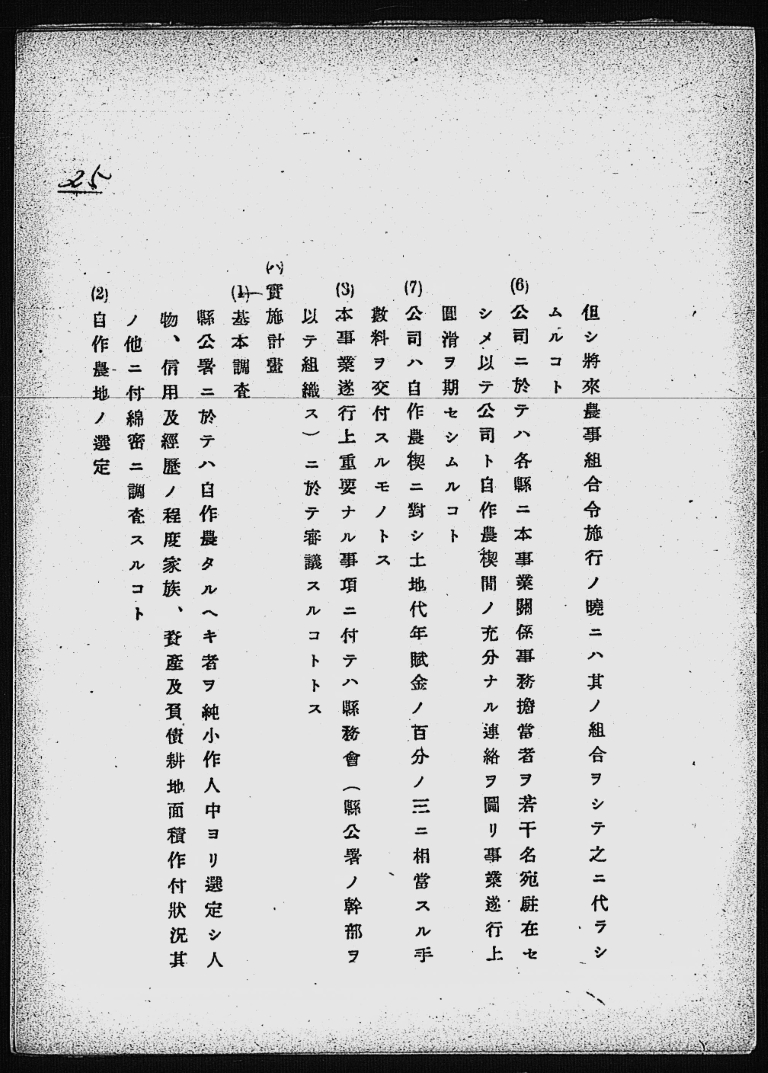 25
但シ將來農事組合令施行ノ曉ニハ其ノ組合ヲシテ之ニ代ラシ
ムルコト
(6)公司ニ於テハ各縣ニ本事業關係事務擔當者ヲ若干名宛駐在セ
シメ以テ公司ト自作農楔間ノ充分ナル連絡ヲ圖リ事業遂行上
圓滑ヲ期セシムルコト
(7)公司ハ自作農楔ニ對シ土地代年賦金ノ百分ノ三ニ相當スル手
數料ヲ交付スルモノトス
(8)本事業遂行上重要ナル事項ニ付テハ縣務會(縣公署ノ幹部ヲ
以テ組織ス)ニ於テ審議スルコトトス
(ハ)實施計畫
(1)基本調査
縣公署ニ於テハ自作農タルヘキ者ヲ純小作人中ヨリ選定シ人
物、信用及經歷ノ程度家族、資產及負債耕地面積作付狀況其
ノ他ニ付綿密ニ調査スルコト
(2)自作農地ノ選定